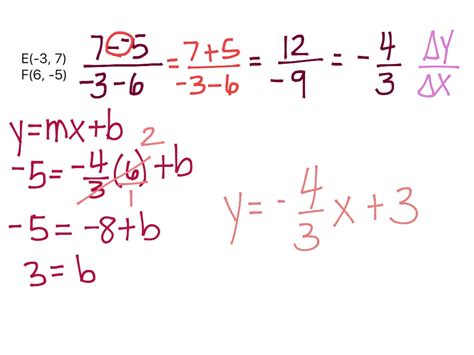 E(-3, 7)
F(6, -5)
7--5/-3-6 = 7+5/-3-6 = 12/-9 = -4/3 ΔY/ΔX
y=mx+b
2
-5=-4/3(6)+b
1
-5=-8+b
3=b
y=-4/3x+3